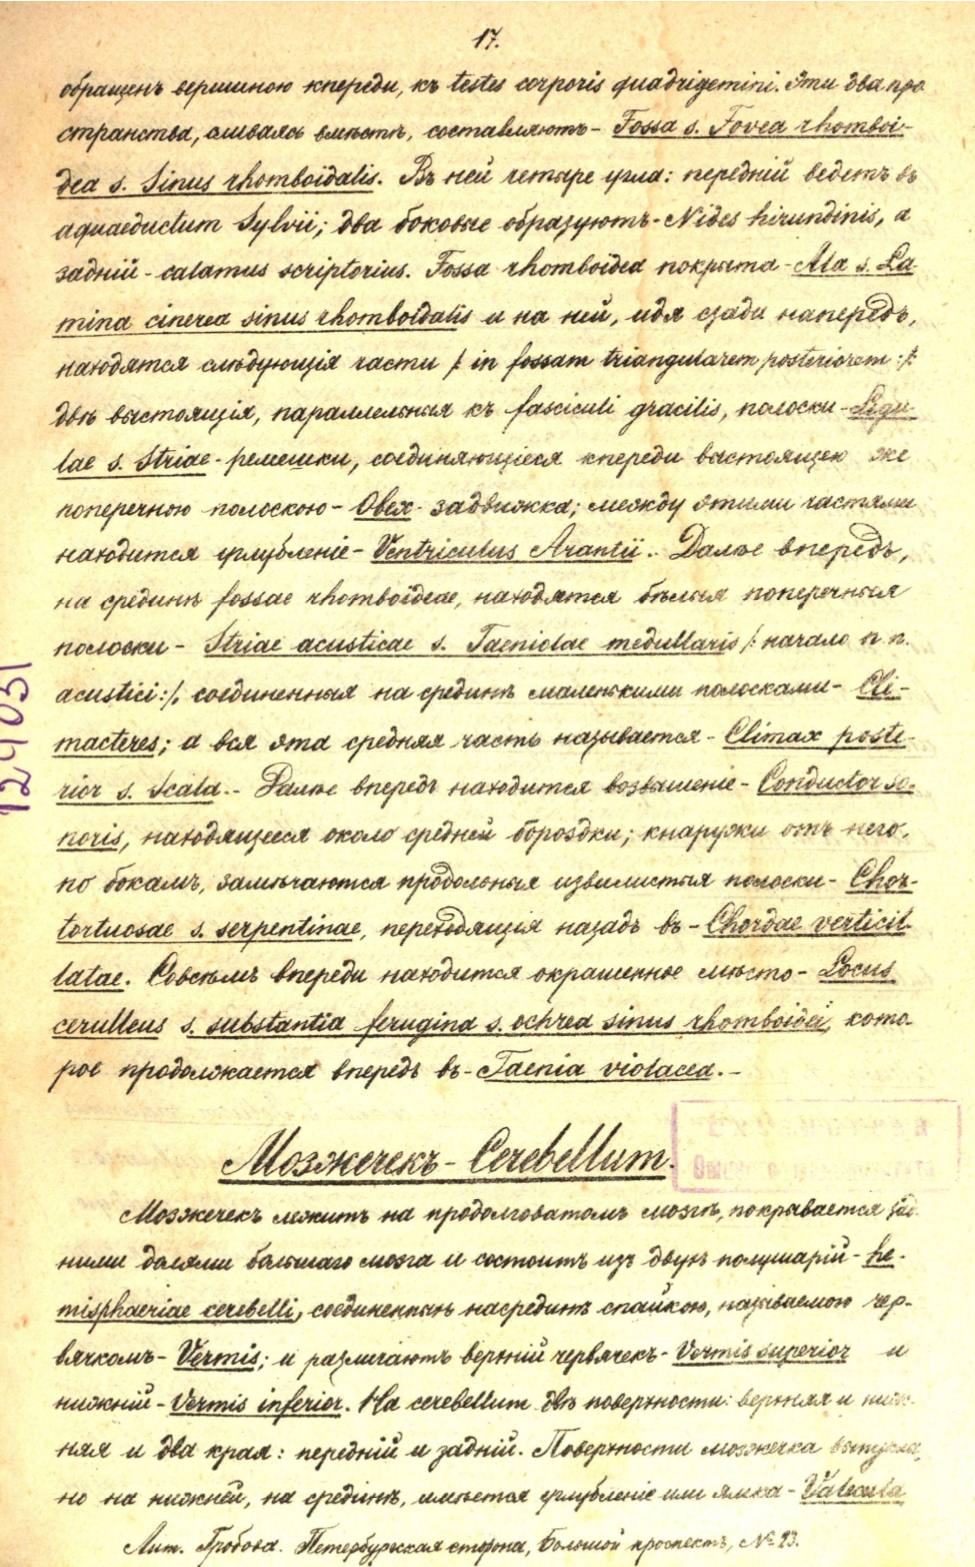 17.
обращенъ вершиною кпереди, къ testes corporis quadrigemini. Эти два про
странства, сливаясь вмѣстѣ, составляютъ - Fossa s. Fovea rhomboi-
dea s. Sinus rhomboïdalis. Въ ней четыре угла: передній ведетъ въ
aquaeductum Sylvii; два боковые образуютъ - Nides hirundinis, а
задній - calamus scriptorius. Fossa rhomboïdea покрыта - Ala s. La-
mina cinerea sinus rhomboïdalis и на ней, идя сзади напередъ,
находятся слѣдующія части /: in fossam triangularem posteriorem :/:
двѣ выстоящія, параллельныя къ fasciculi gracilis, полоски - Ligu-
lae s. Striae - ремешки, соединяющіеся кпереди выстоящею же
поперечною полоскою - Obex - задвижка; между этими частями
находится углубленіе - Ventriculus Arantii. Далѣе впередъ,
на срединѣ fossae rhomboïdeae, находятся бѣлыя поперечныя
полоски - Striae acusticae s. Taeniolae medullaris /: начало n. n.
acustici :/, соединенныя на срединѣ маленькими полосками - Cli-
macteres; а вся эта средняя часть называется - Climax poste-
rior s. Scala. - Далѣе впередъ находится возвышеніе - Conductor so-
noris, находящееся около средней бороздки; кнаружи отъ него,
по бокамъ, замѣчаются продольныя извилистыя полоски - Chor-
tortuosae s. serpentinae, переходящія назадъ въ - Chordae verticil-
latae. Совсѣмъ впереди находится окрашенное мѣсто - Locus
cerulleus s. substantia ferugina s. ochrea sinus rhomboidei, кото-
рое продолжается впередъ въ - Taenia violacea. -
Мозжечекъ - Cerebellum.
Мозжечекъ лежитъ на продолговатомъ мозгѣ, покрывается зад-
ними долями большаго мозга и состоитъ изъ двухъ полушарій - he-
misphaeriae cerebelli, соединенныхъ насрединѣ спайкою, называемою чер-
вячкомъ - Vermis; и различаютъ верхній червячекъ - Vermis superior и
нижній - Vermis inferior. На cerebellum двѣ поверхности: верхняя и ниж-
няя и два края: передній и задній. Поверхности мозжечка выпуклы,
но на нижней, на срединѣ, имѣется углубленіе или ямка - Valecula
Лит. Гробова. Петербургская сторона, Большой проспектъ, № 23.
124031